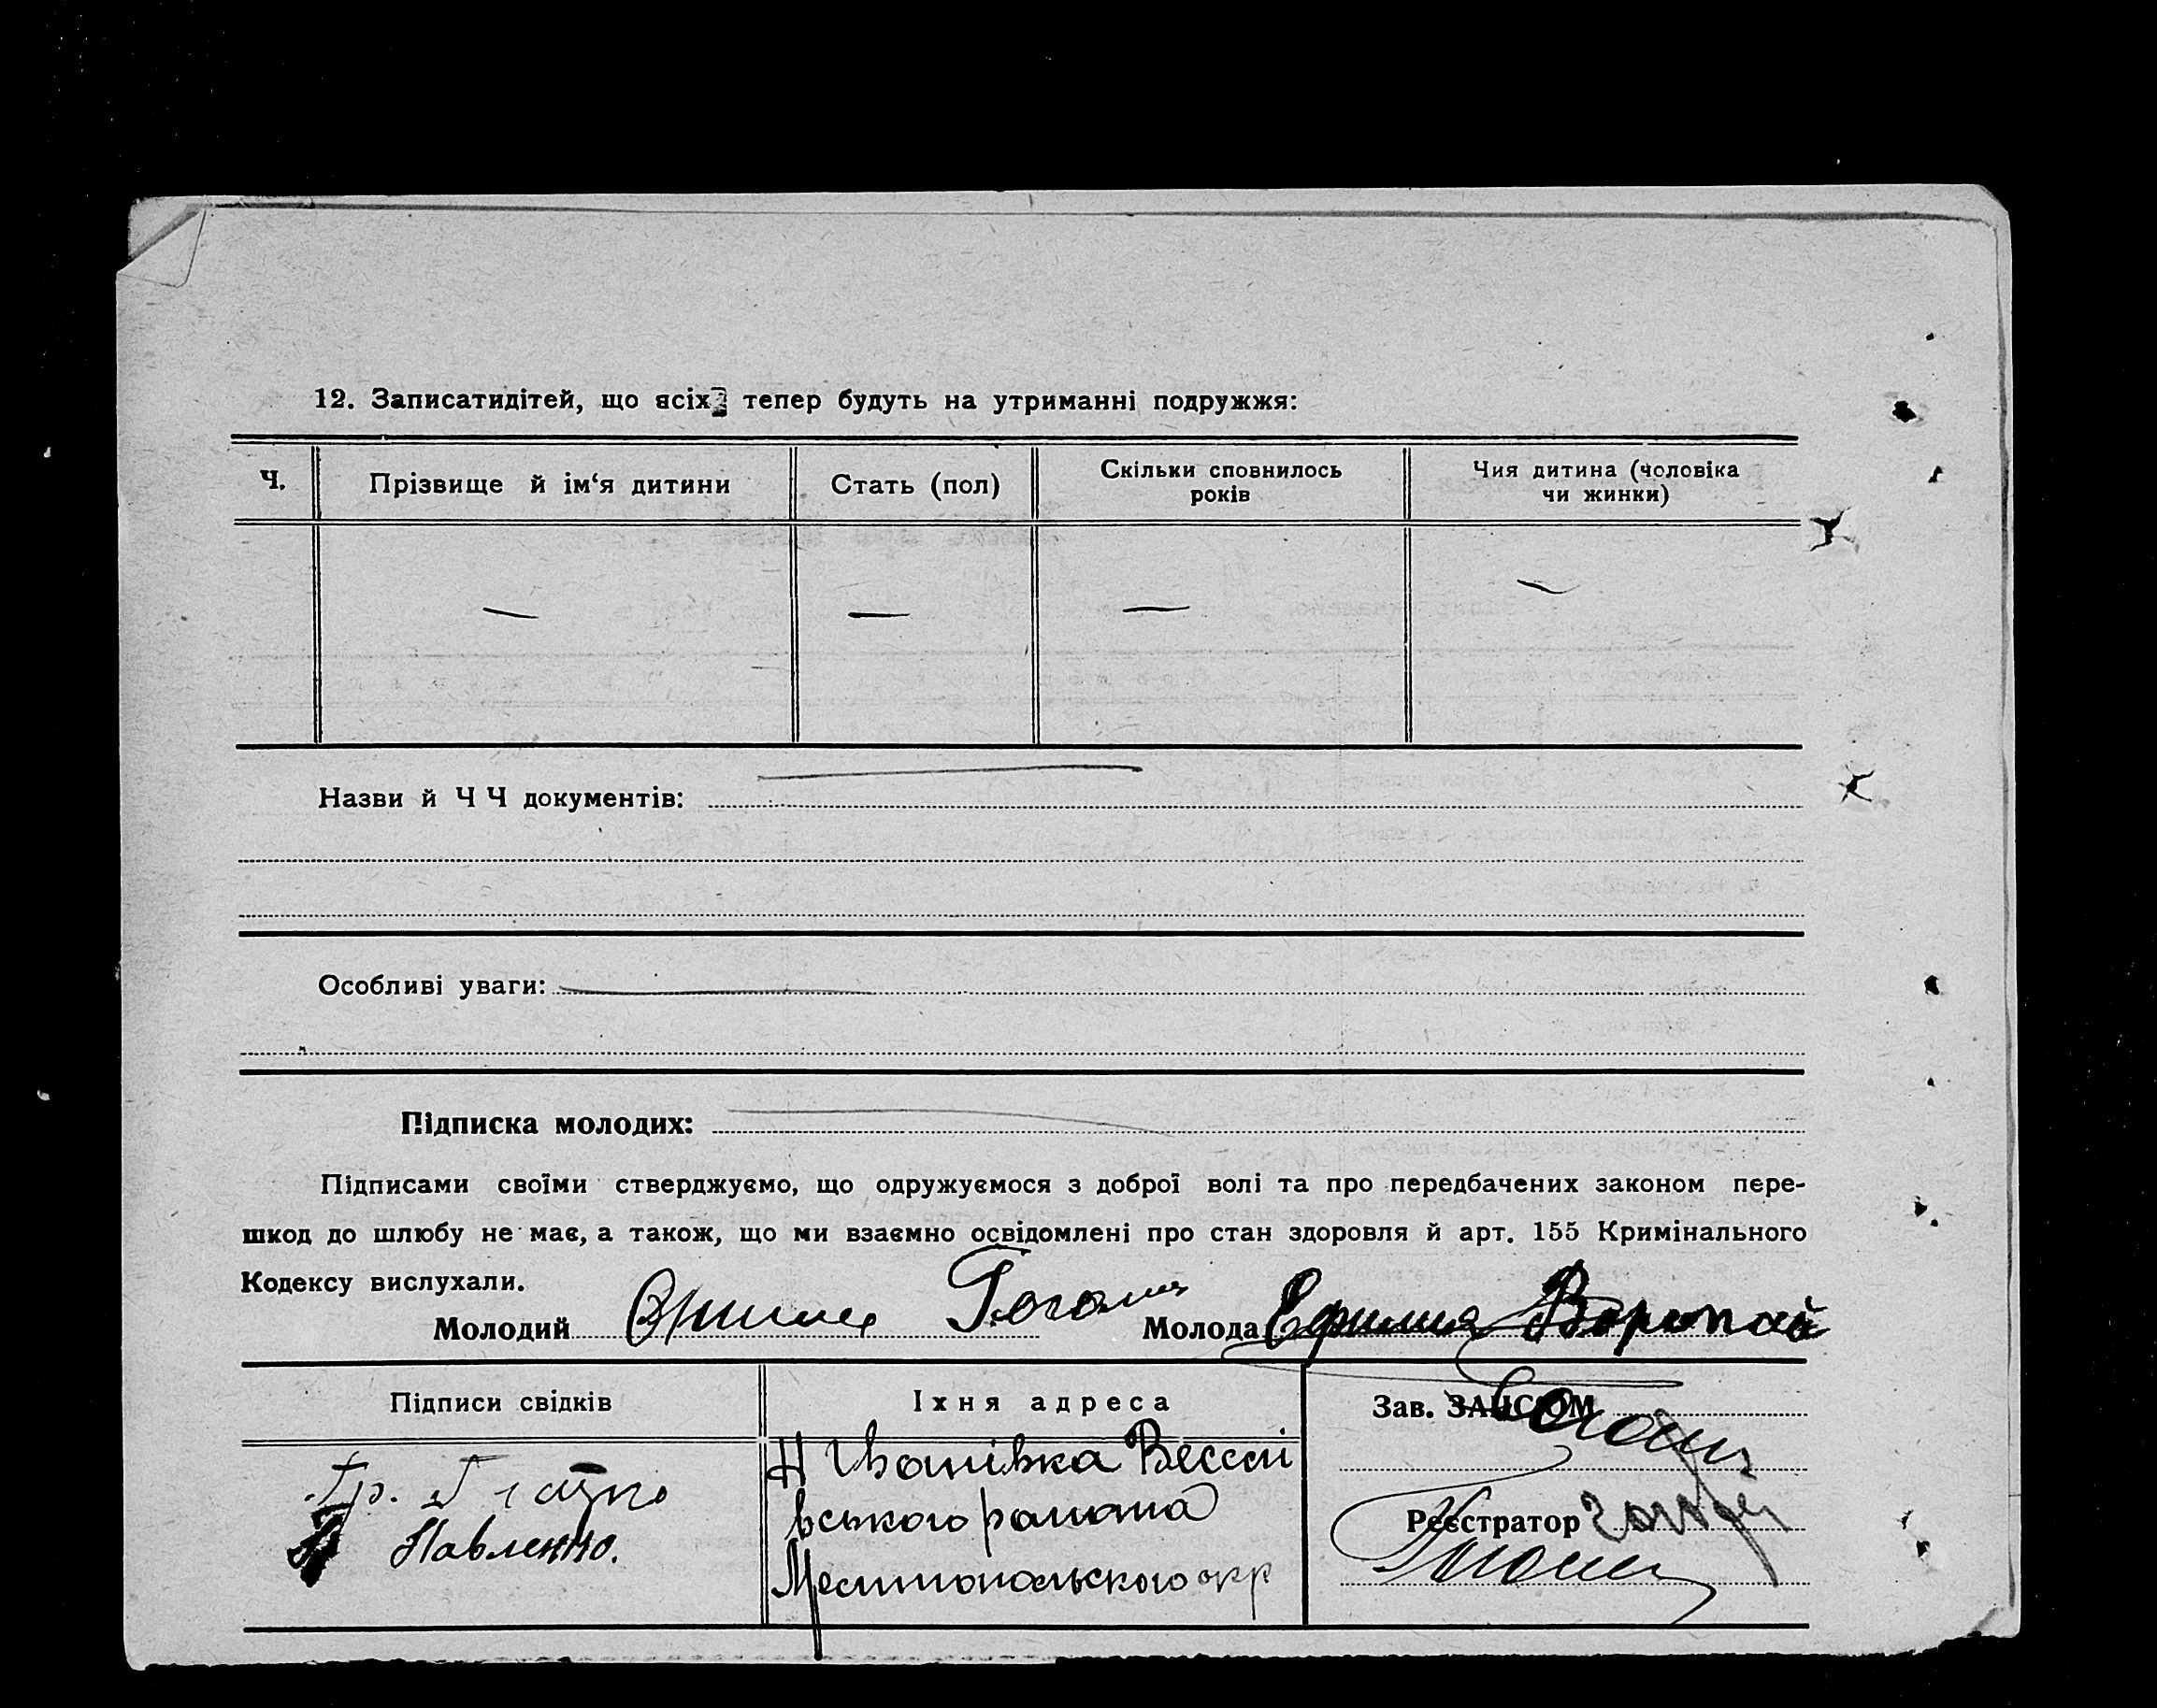 12. Записатидітей, що всіх тепер будуть на утриманні подружжя:
Ч.
Прізвище й ім‘я дитини
Стать (пол)
Скільки сповнилось
років
Чия дитина (чоловіка
чи жинки)
—
—
—
—
Назви й Ч Ч документів:
Особливі уваги:
Підписка молодих:
Підписами своїми стверджуємо, що одружуємося з доброї волі та про передбачених законом пере-
шкод до шлюбу не має, а також, що ми взаємно освідомлені про стан здоровля й арт. 155 Кримінального
Кодексу вислухали.
Молодий
Молода Ефимия Воропай
Підписи свідків
Іхня адреса
Зав. ЗАГСОМ
Гр.
Павленко.
Н Іванівка Веселі
вського района
Мелітопольського окр
Реєстратор